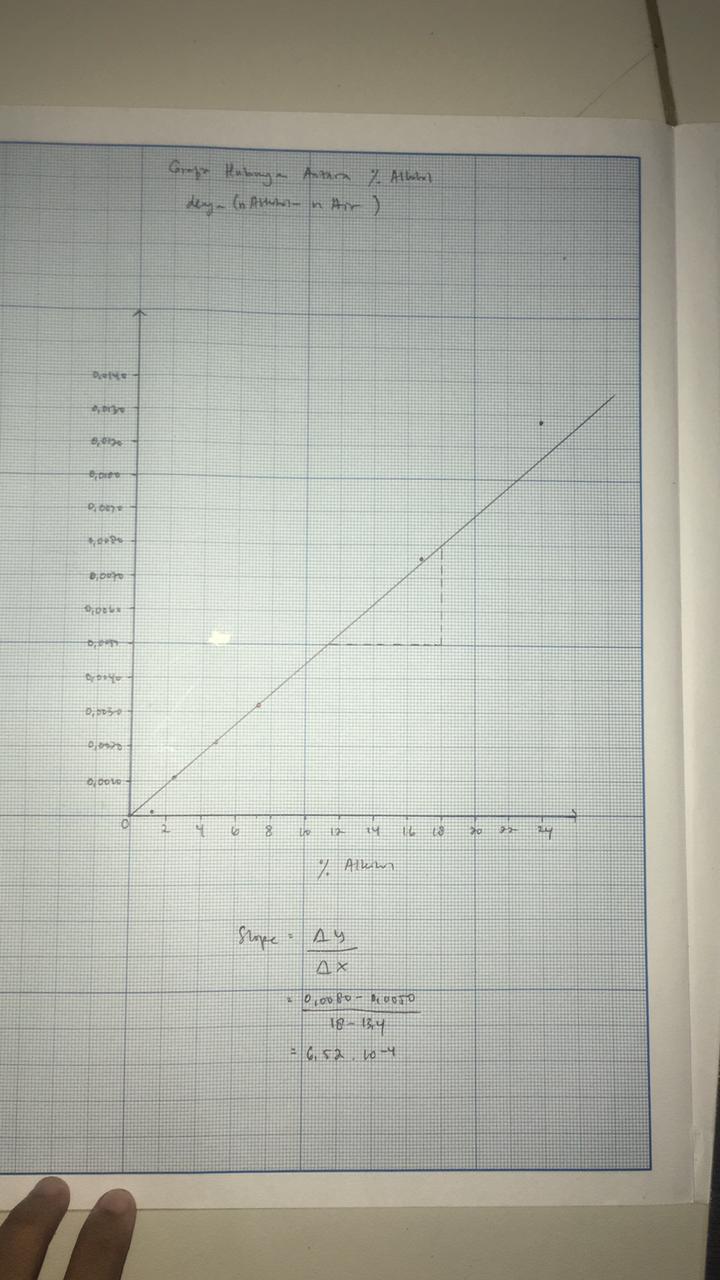 Grafik Hubungan Antara % Alkohol
dengan (n Alkohol - n Air)
0,0140
0,0130
0,0120
0,0100
0,0090
0,0080
0,0070
0,0060
0,0050
0,0040
0,0030
0,0020
0,0010
0 2 4 6 8 10 12 14 16 18 20 22 24
% Alkohol
Slope = Δy
Δx
= 0,0080 - 0,0050
18 - 13,4
= 6,52 . 10-4